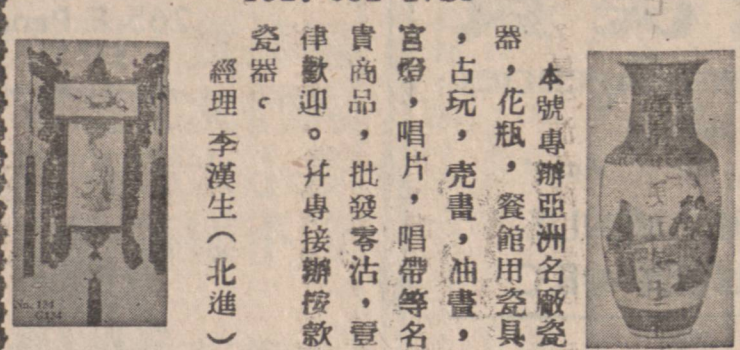 本號專辦亞洲名廠瓷
器，花瓶，餐館用瓷具
，古玩，壳畫，油畫，
宮燈，唱片，唱帶等名
貴商品，批發零沽，壹
律歡迎。幷專接辦按款
瓷器。
經理 李漢生（北進）
No. 134
G134